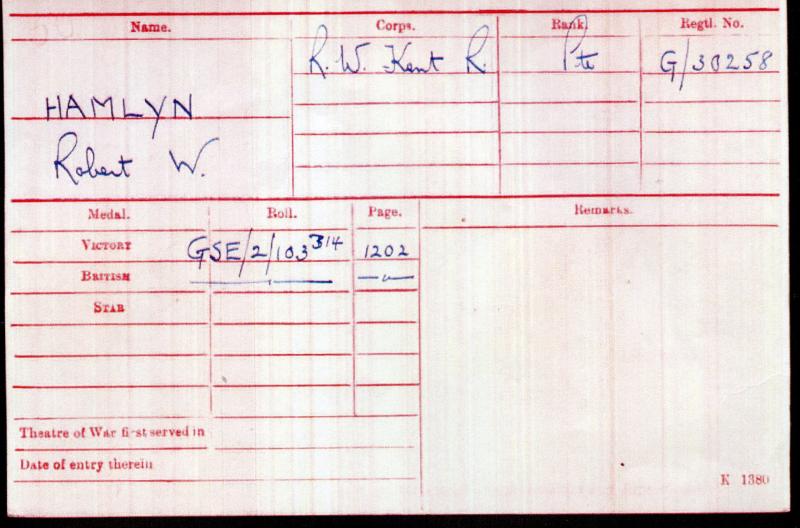 Name. Corps. Rank. Regtl. No.
R. W. Kent R. Pte G/30258
HAMLYN
Robert W.
Medal. Roll. Page. Remarks.
VICTORY GSE/2/103 314 1202
BRITISH — " —
STAR
Theatre of War first served in
Date of entry therein
K 1380